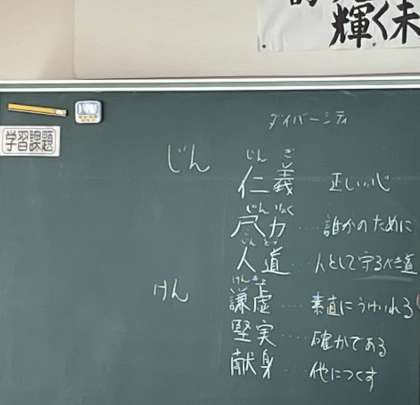 輝く未
学習課題
ダイバーシティ
じん
じんご
仁義 正しい心
じんりょく
尽力 … 誰かのために
人道 … 人として守るべき道
けん
けんきょ
謙虚 … 素直にうけいれる
堅実 … 確かである
献身 … 他につくす